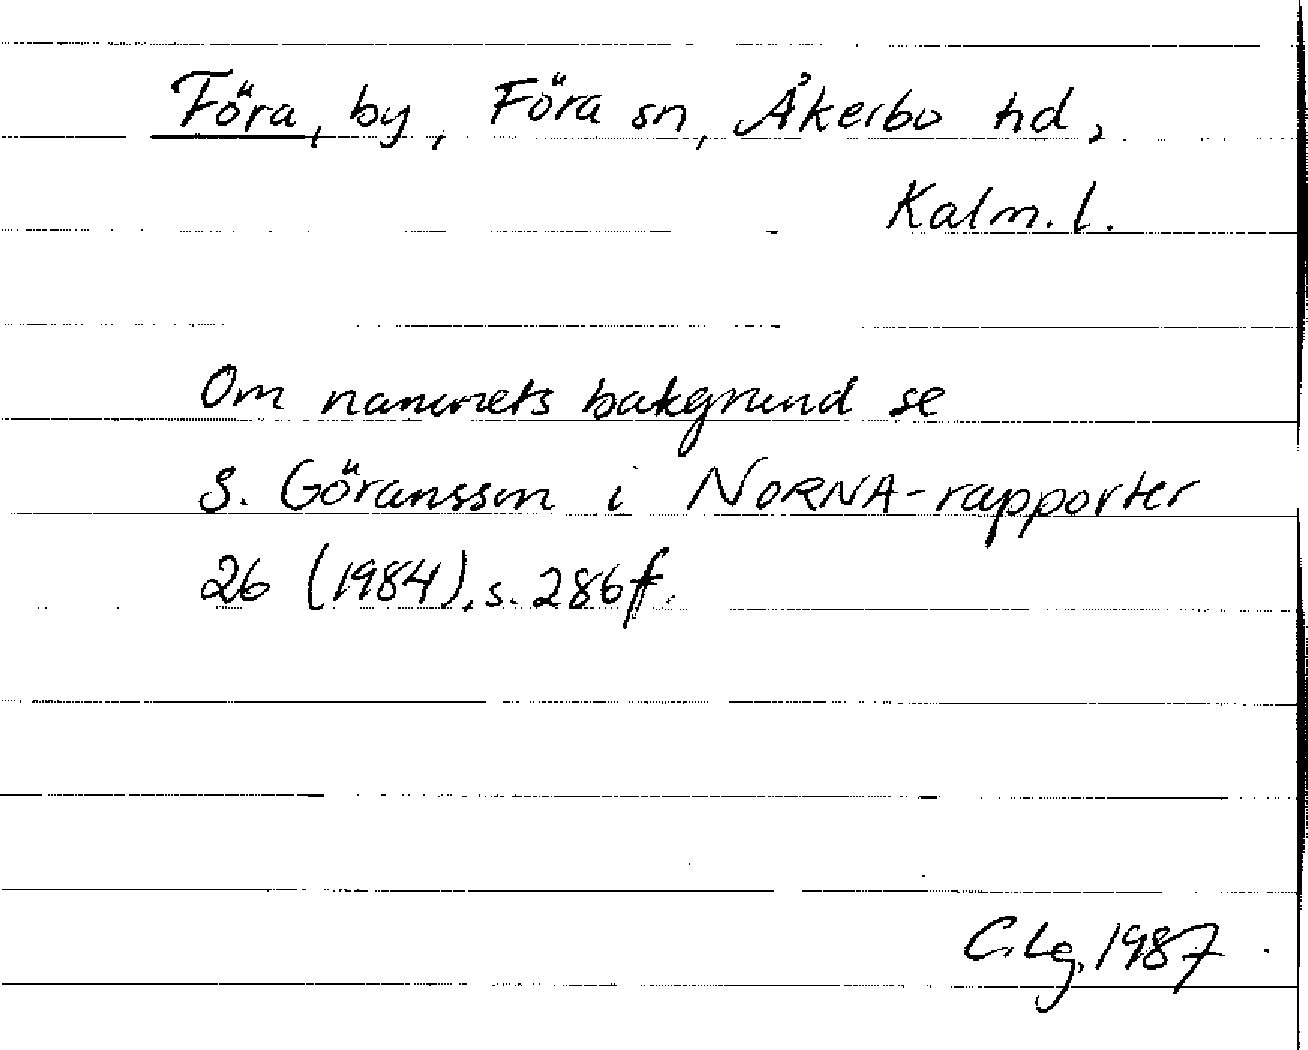 Föra, by, Föra sn, Åkerbo hd,
Kalm. l.
Om namnets bakgrund se
S. Göransson i NORNA-rapporter
26 (1984), s. 286 f.
C. Lg. 1987